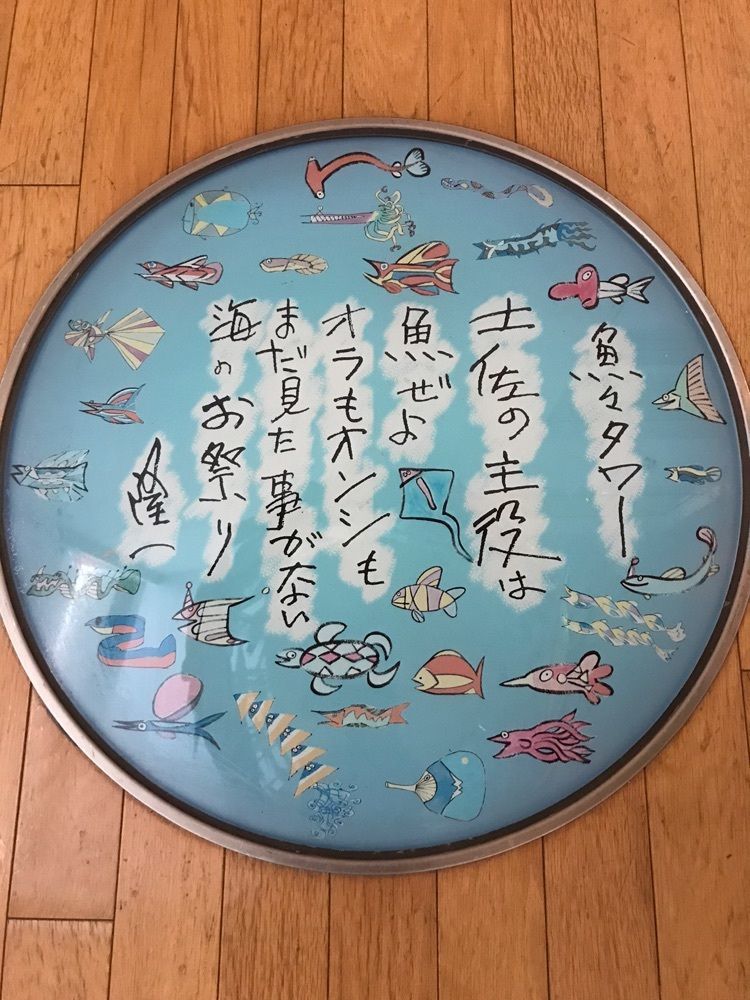 魚々タワー
土佐の主役は
魚ぜよ
オラもオンシも
まだ見た事がない
海のお祭り
隆一